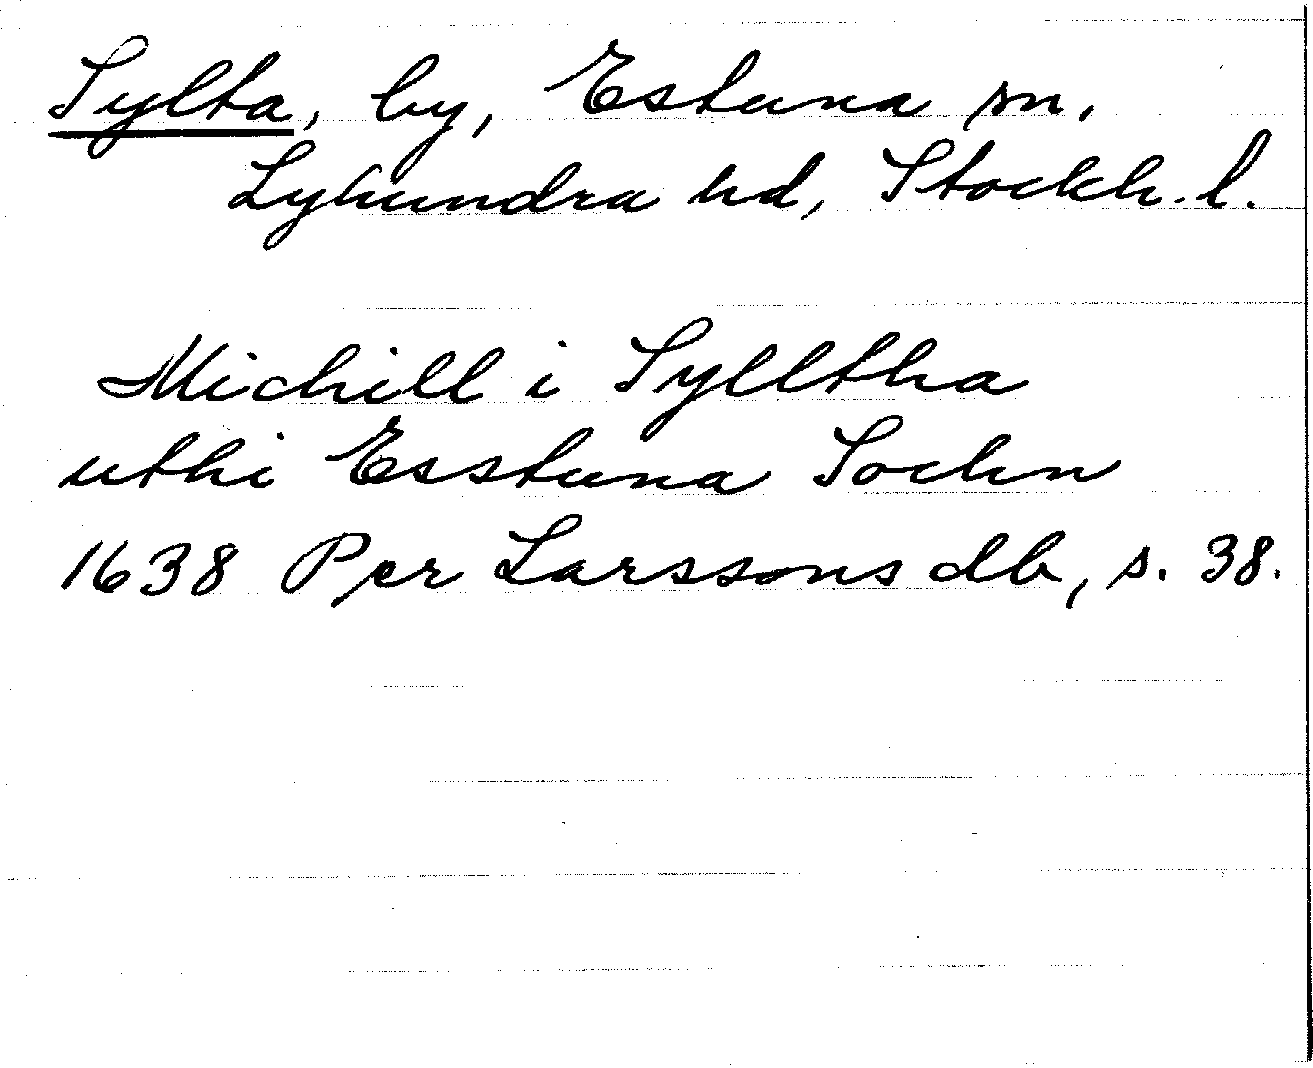 Sylta, by, Estuna sn.
Lyhundra hd, Stockh. l.
Michill i Sylltha
uthi Esstuna Sochn
1638 Per Larssons db, s. 38.